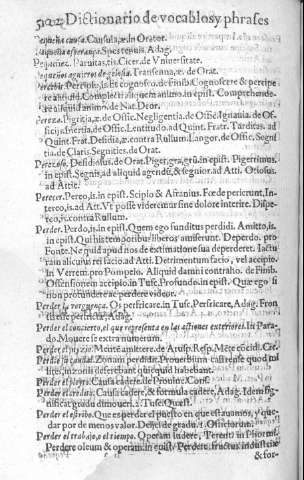 5122 Dictionario de vocablos y phrases
Pequeña causa. Causula, æ. in Orator.
Pequeña esperança. Spes tenuis. Adag.
Pequeñez. Paruitas, tis. Cicer. de Vniuersitate.
de Orat.
Percipio, is. Et cognosco. de Finib. Cognoscere & percipe
re animo. Complecti aliquem animo. in epist. Comprehende-
re aliquid animo. de Nat. Deor.
Pereza. Pigritia, æ. de Offic. Negligentia. de Offic. Ignauia. de Of-
ficijs. Inertia. de Offic. Lentitudo. ad Quint. Frat. Tarditas. ad
Quint. Frat. Desidia, æ. contra Rullum. Langor. de Offic. Segni
tia. de Claris. Segnities. de Orat.
Perezoso. Desidiosus. de Orat. Piger, gra, grũ. in epist. Pigerrimus.
in epist. Segnis, ad aliquid agendũ, & segnior. ad Atti. Otiosus.
ad Attic.
Perecer. Pereo, is. in epist. Scipio & Afranius. Fœde perierunt. In-
tereo, is. ad Att. Vt posse videremur sine dolore interire. Dispe-
reo, is. contra Rullum.
Perder. Perdo, is. in epist. Quem ego funditus perdidi. Amitto, is.
in epist. Qui his temporibus liberos amiserunt. Deperdo. pro
Fonte. Ne quid apud nos de existimatione sua deperderet. Iactu-
ram alicuius rei facio. ad Atti. Detrimentum facio, vel accipio.
In Verrem. pro Pompeio. Aliquid damni contraho. de Finib.
Offensionem accipio. in Tusc. Profundo. in epist. Quæ ego si
non profundere ac perdere videor.
Perder la verguença. Os perficare. in Tusc. Perfricare, Adag. Fron
Perder el concierto, el que representa en las actiones exteriores. In Para-
do. Mouere se extra numerum.
Perder el juyzio. Mente
Perder
Perder el pleyto. Causa cadere. de Prouinc. Cons.
Perder Causa cadere, & formula cadere, Adag. Idem sig-
nificat gradu dimoueri. 2. Tusc. Quæst.
Perder el estribo. Que es perder el puesto en que estauamos, y que-
dar por de menos valor. Deijci de gradu. 1. Officiorum.
Perder el trabajo, o el tiempo. Operam ludere, Terent. in Phorm.
Perdere oleum & operam. in epist. Perdere fructus industriæ
& for-